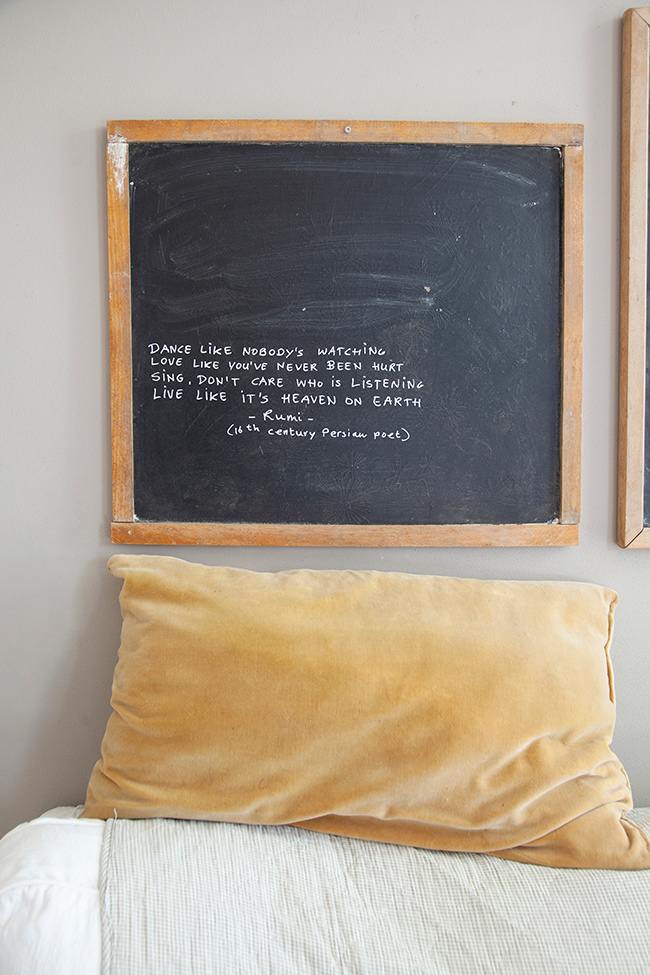 DANCE LIKE NOBODY'S WATCHING
LOVE LIKE YOU'VE NEVER BEEN HURT
SING, DON'T CARE WHO IS LISTENING
LIVE LIKE IT'S HEAVEN ON EARTH
- Rumi -
(16th century Persian poet)